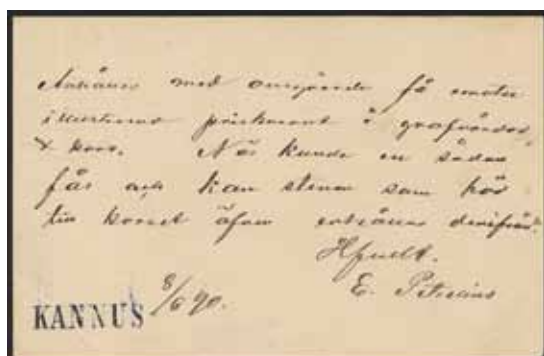 Anhåller med omgående få emotta
illustrerad priskurant å grafvårdar,
& kors. När kunde en sådan
fås och kan stenen som hör
till korset äfven erhållas derifrån?
Hfullt.
E. Petrelius
8/6 90.
KANNUS